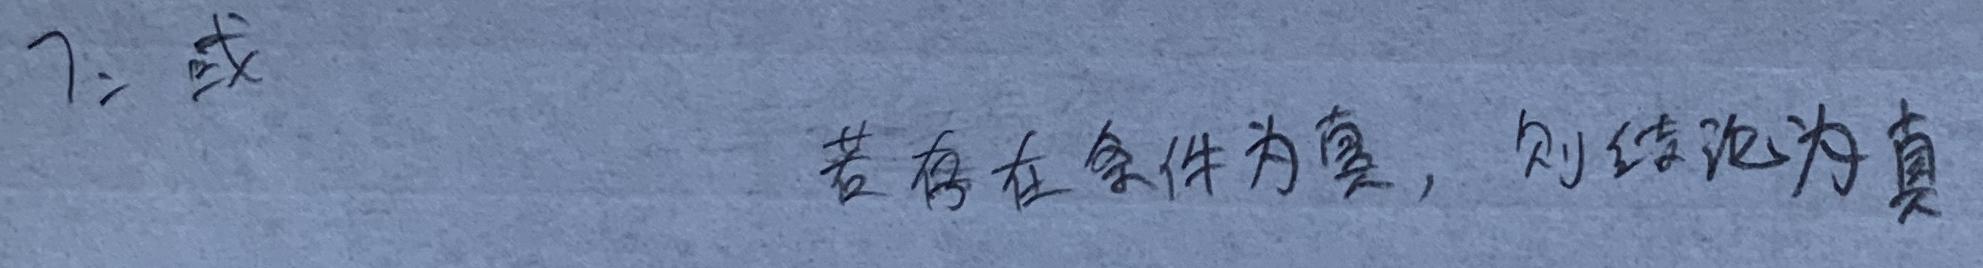 7: 或
若存在条件为真，则结论为真